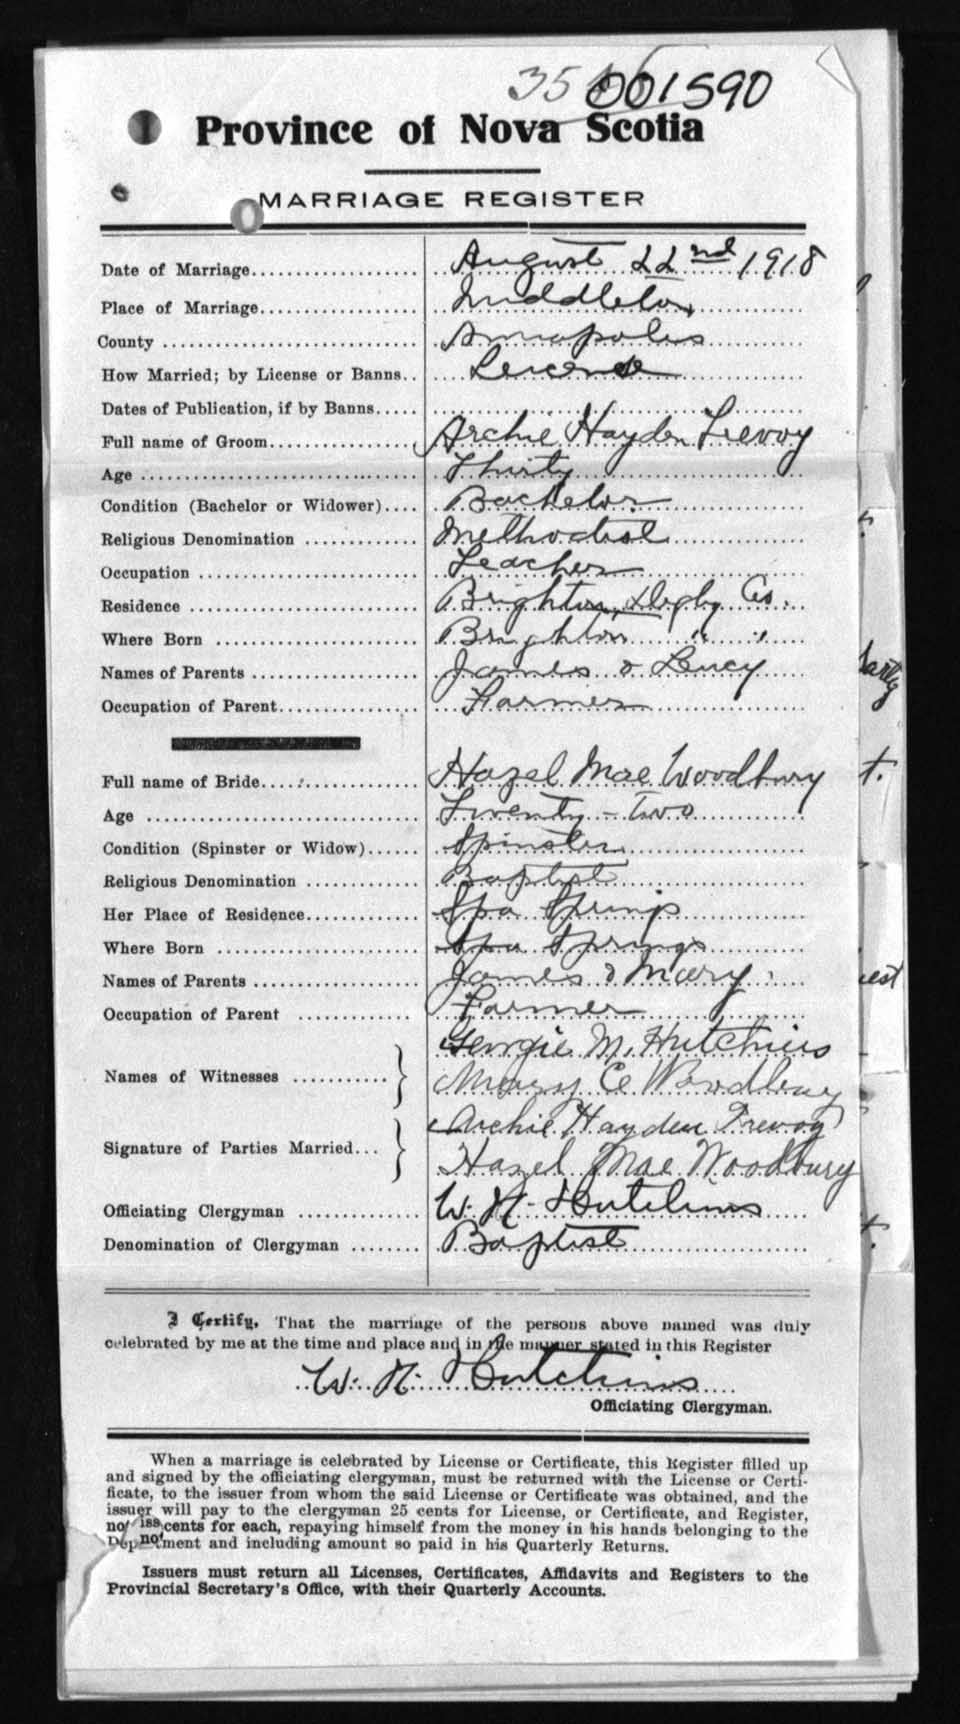 001590
Province of Nova Scotia
MARRIAGE REGISTER
Date of Marriage August 22nd 1918
Place of Marriage Middleton
County Annapolis
How Married; by License or Banns License
Dates of Publication, if by Banns
Full name of Groom Archie Hayden Trevoy
Age Thirty
Condition (Bachelor or Widower) Bachelor
Religious Denomination Methodist
Occupation Teacher
Residence Brighton, Digby Co.
Where Born Brighton " "
Names of Parents James & Lucy
Occupation of Parent Farmer
Full name of Bride Hazel Mae Woodbury
Age Twenty-two
Condition (Spinster or Widow) Spinster
Religious Denomination Baptist
Her Place of Residence Spa Springs
Where Born Spa Springs
Names of Parents James & Mary
Occupation of Parent Farmer
Georgie M. Hutchins
Names of Witnesses
Mary E Woodbury
Archie Hayden Trevoy
Signature of Parties Married
Hazel Mae Woodbury
Officiating Clergyman W. N. Hutchins
Denomination of Clergyman Baptist
I Certify, That the marriage of the persons above named was duly
celebrated by me at the time and place and in the manner stated in this Register
W. N. Hutchins
Officiating Clergyman.
When a marriage is celebrated by License or Certificate, this Register filled up
and signed by the officiating clergyman, must be returned with the License or Certi-
ficate, to the issuer from whom the said License or Certificate was obtained, and the
issuer will pay to the clergyman 25 cents for License, or Certificate, and Register,
not cents for each, repaying himself from the money in his hands belonging to the
Department and including amount so paid in his Quarterly Returns.
Issuers must return all Licenses, Certificates, Affidavits and Registers to the
Provincial Secretary's Office, with their Quarterly Accounts.